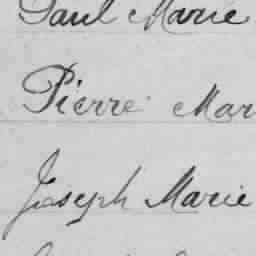 Paul Marie
Pierre Mar
Joseph Marie